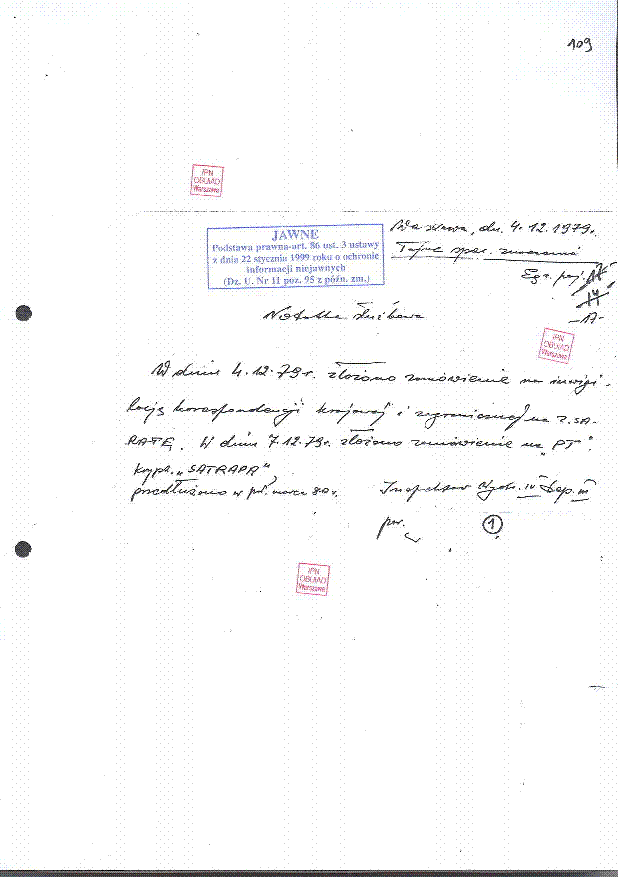 109
IPN
OBUiAD
Warszawa
JAWNE
Podstawa prawna-art. 86 ust. 3 ustawy
z dnia 22 stycznia 1999 roku o ochronie
informacji niejawnych
(Dz. U. Nr 11 poz. 95 z późn. zm.)
Warszawa, dn. 4.12.1979r.
Tajne spec. znaczenia
Egz. poj.
-17-
Notatka służbowa
IPN
OBUiAD
Warszawa
W dniu 4.12.79r. złożono zamówienie na inwigi-
lację korespondencji krajowej i zagranicznej na Z.SA-
RATĘ. W dniu 7.12.79r. złożono zamówienie na "PT".
krypt. „SATRAPA”
przedłużono w poł. marca 80r.
Inspektor Wydz. IV Dep. III
por.
1
IPN
OBUiAD
Warszawa